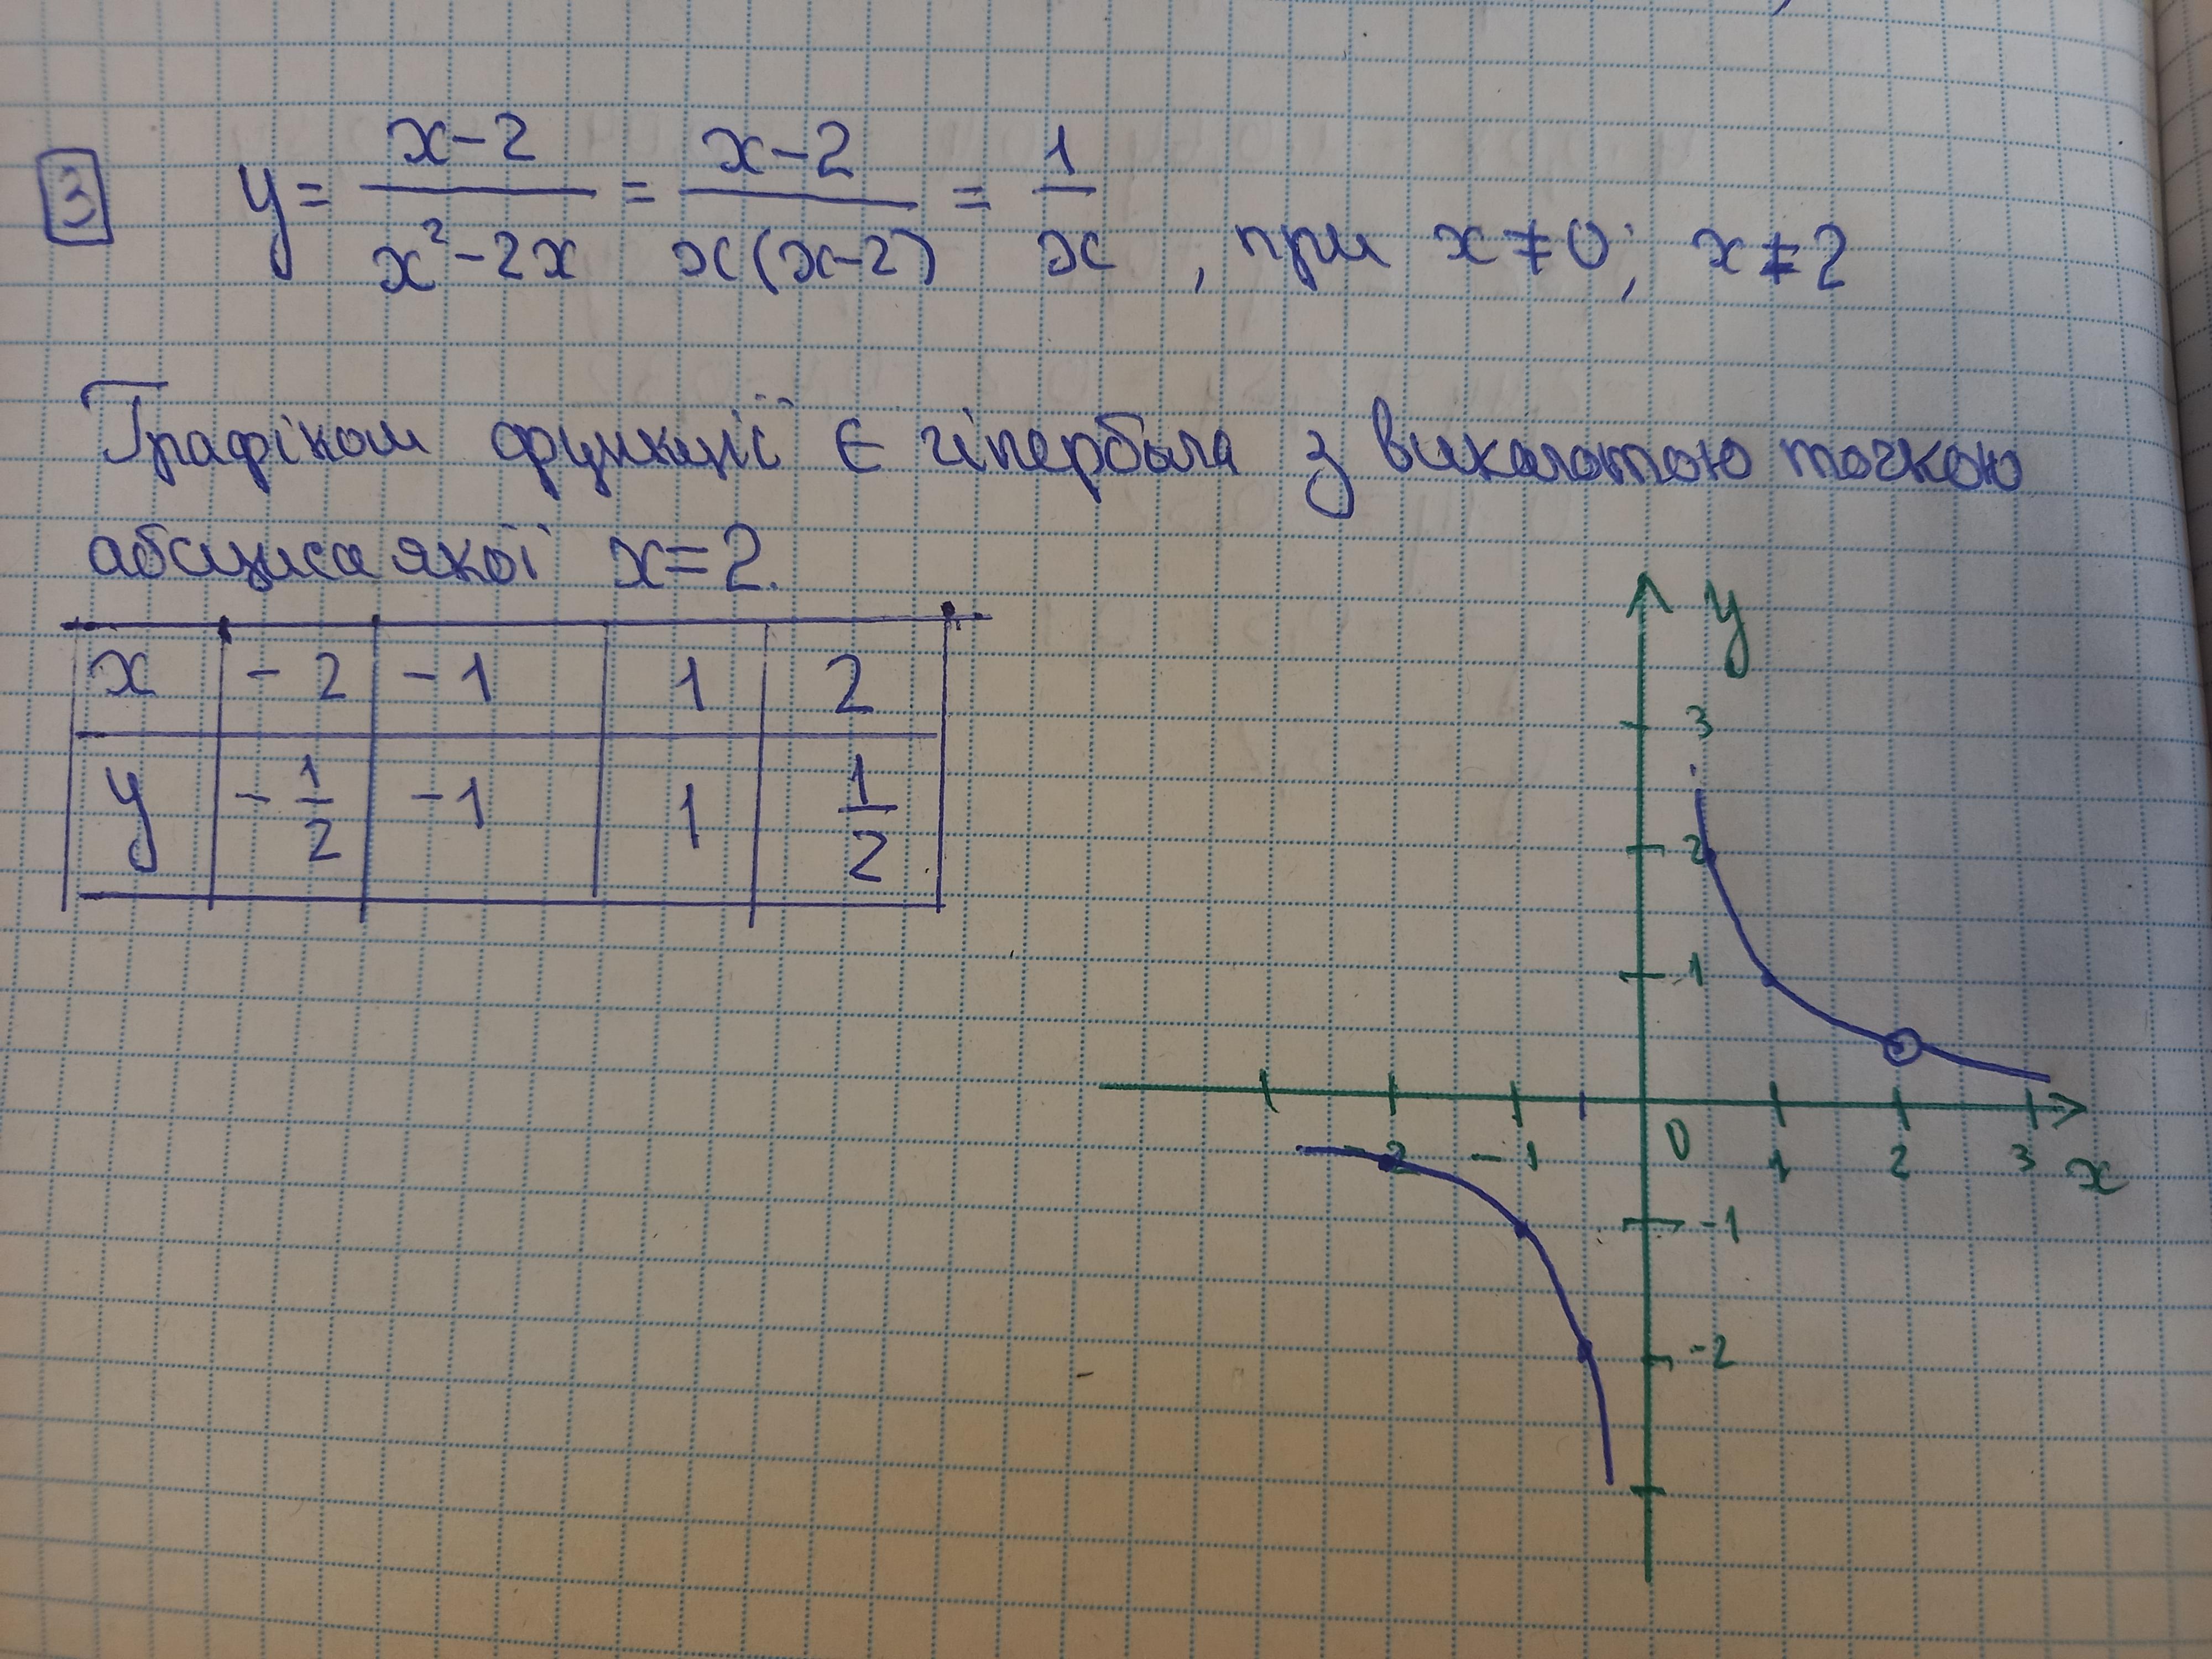 3 y = x-2 / x²-2x = x-2 / x(x-2) = 1/x , при x≠0; x≠2
Графіком функції є гіпербола з виколотою точкою
абсциса якої x=2.
x -2 -1 1 2
y -1/2 -1 1 1/2
y
3
2
1
-2 -1 0 1 2 3 x
-1
-2